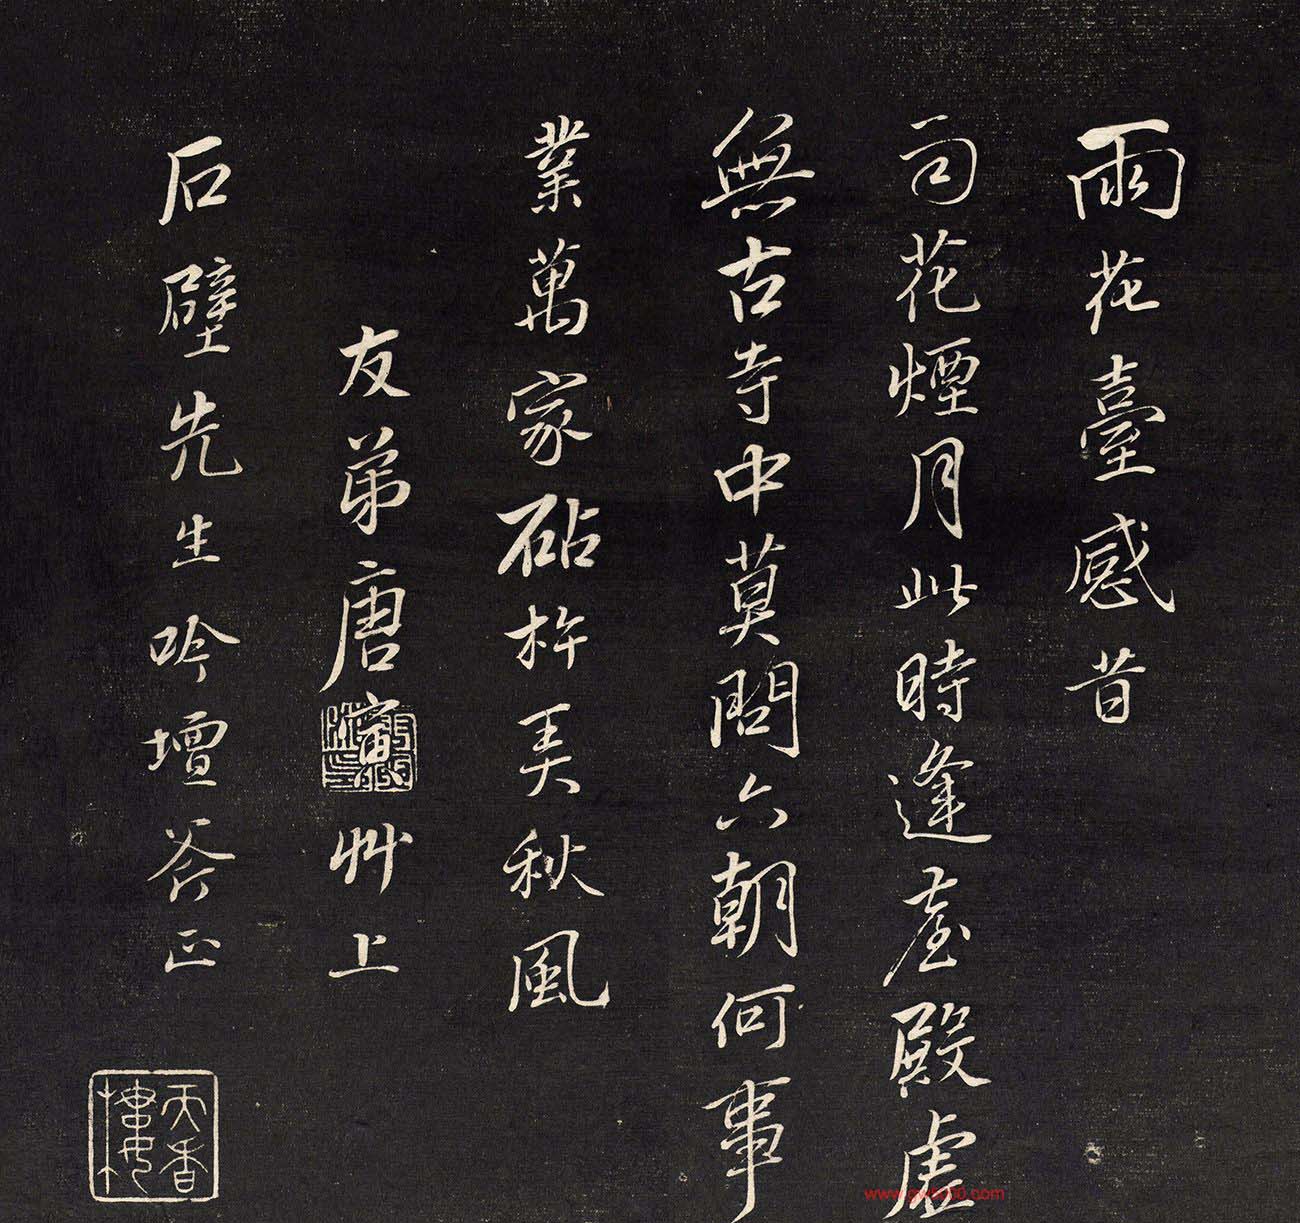 雨花臺感昔
司花煙月此時逢臺殿虛
無古寺中莫問六朝何事
業萬家砧杵美秋風
友弟唐寅艸上
石壁先生吟壇荅正
天香樓
www.gws000.com